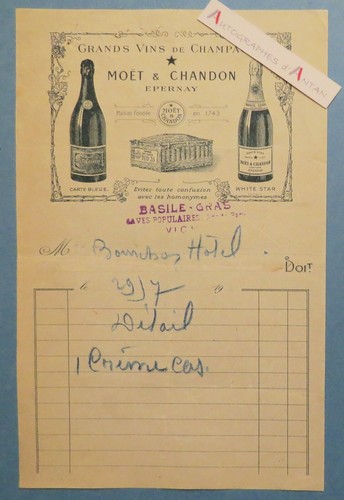 Autographes d'Antan
GRANDS VINS DE CHAMPA
MOËT & CHANDON
EPERNAY
Maison Fondée en 1743
MOËT & CHANDON
CARTE BLEUE.
WHITE STAR
Eviter toute confusion
avec les homonymes
BASILE-GRAS
CAVES POPULAIRES
VIC
M
Hôtel
Doit
le 19
29/7
Détail
1 Crème Cas.